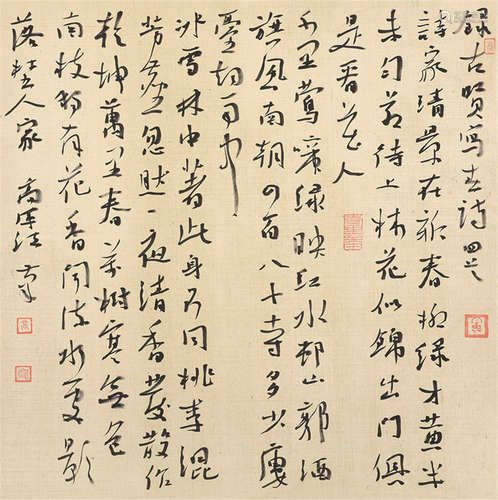 錄古賢寫春詩四首
詩家清景在新春柳綠才黃半
未勻若待上林花似錦出門俱
是看花人
千里鶯啼綠映紅水邨山郭酒
旗風南朝四百八十寺多少樓
臺烟雨中
冰雪林中著此身不同桃李混
芳塵忽然一夜清香發散作
乾坤萬里春萬樹寒無色
南枝獨有花香聞流水處影
落野人家